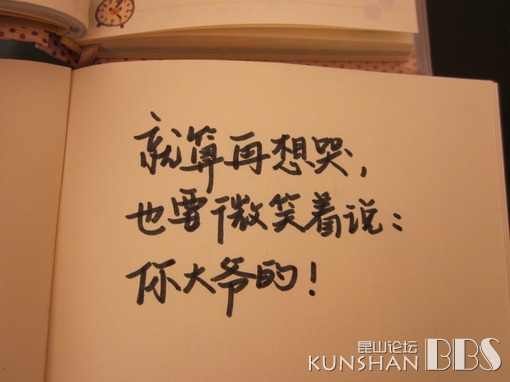 就算再想哭,
也要微笑着说:
你大爷的!
昆山论坛
KUNSHAN BBS